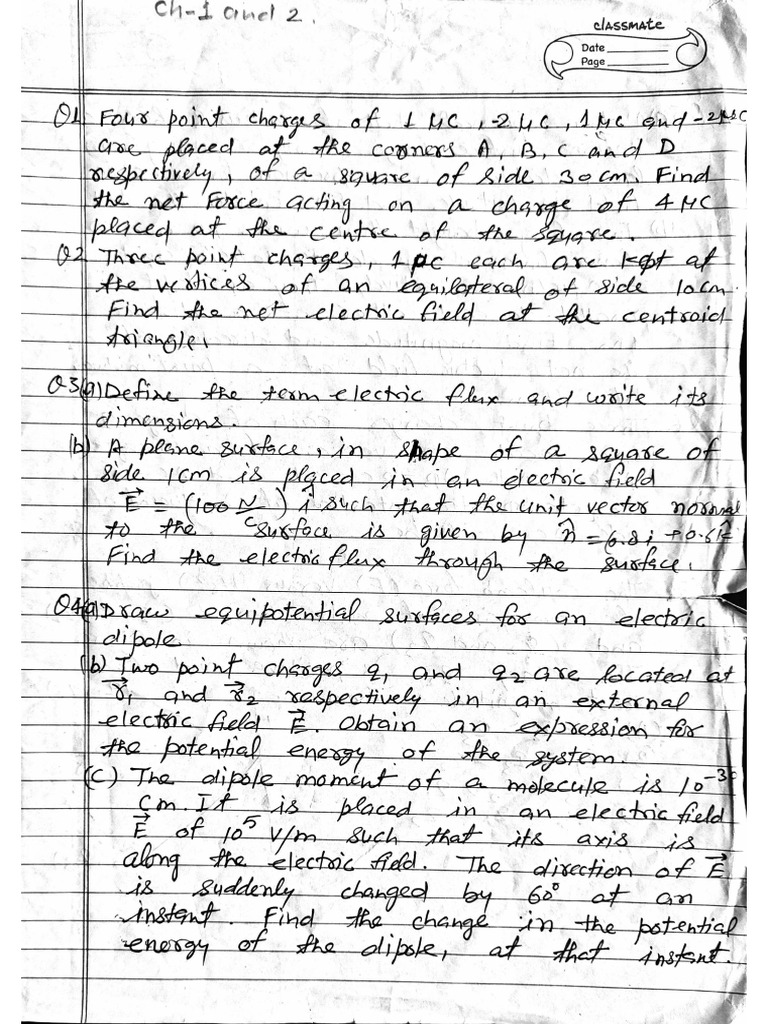 Ch-1 and 2.
classmate
Date
Page
Q1 Four point charges of 1 μC, -2 μC, 1 μC and -2 μC
are placed at the corners A, B, C and D
respectively, of a square of side 30 cm. Find
the net Force acting on a charge of 4 μC
placed at the centre of the square.
Q2 Three point charges, 1 pc each are kept at
the vertices of an equilateral of side 10 cm.
Find the net electric field at the centroid
triangle.
Q3 (a) Define the term electric flux and write its
dimensions.
(b) A plane surface, in shape of a square of
side 1cm is placed in an electric field
E⃗ = (100 N/C) î such that the unit vector normal
to the surface is given by n̂ = 0.8 i + 0.6 k̂
Find the electric flux through the surface.
Q4 (a) Draw equipotential surfaces for an electric
dipole
(b) Two point charges q₁ and q₂ are located at
r⃗₁ and r⃗₂ respectively in an external
electric field E⃗. Obtain an expression for
the potential energy of the system.
(c) The dipole moment of a molecule is 10⁻³⁰
Cm. It is placed in an electric field
E⃗ of 10⁵ V/m such that its axis is
along the electric field. The direction of E⃗
is suddenly changed by 60° at an
instant. Find the change in the potential
energy of the dipole, at that instant.